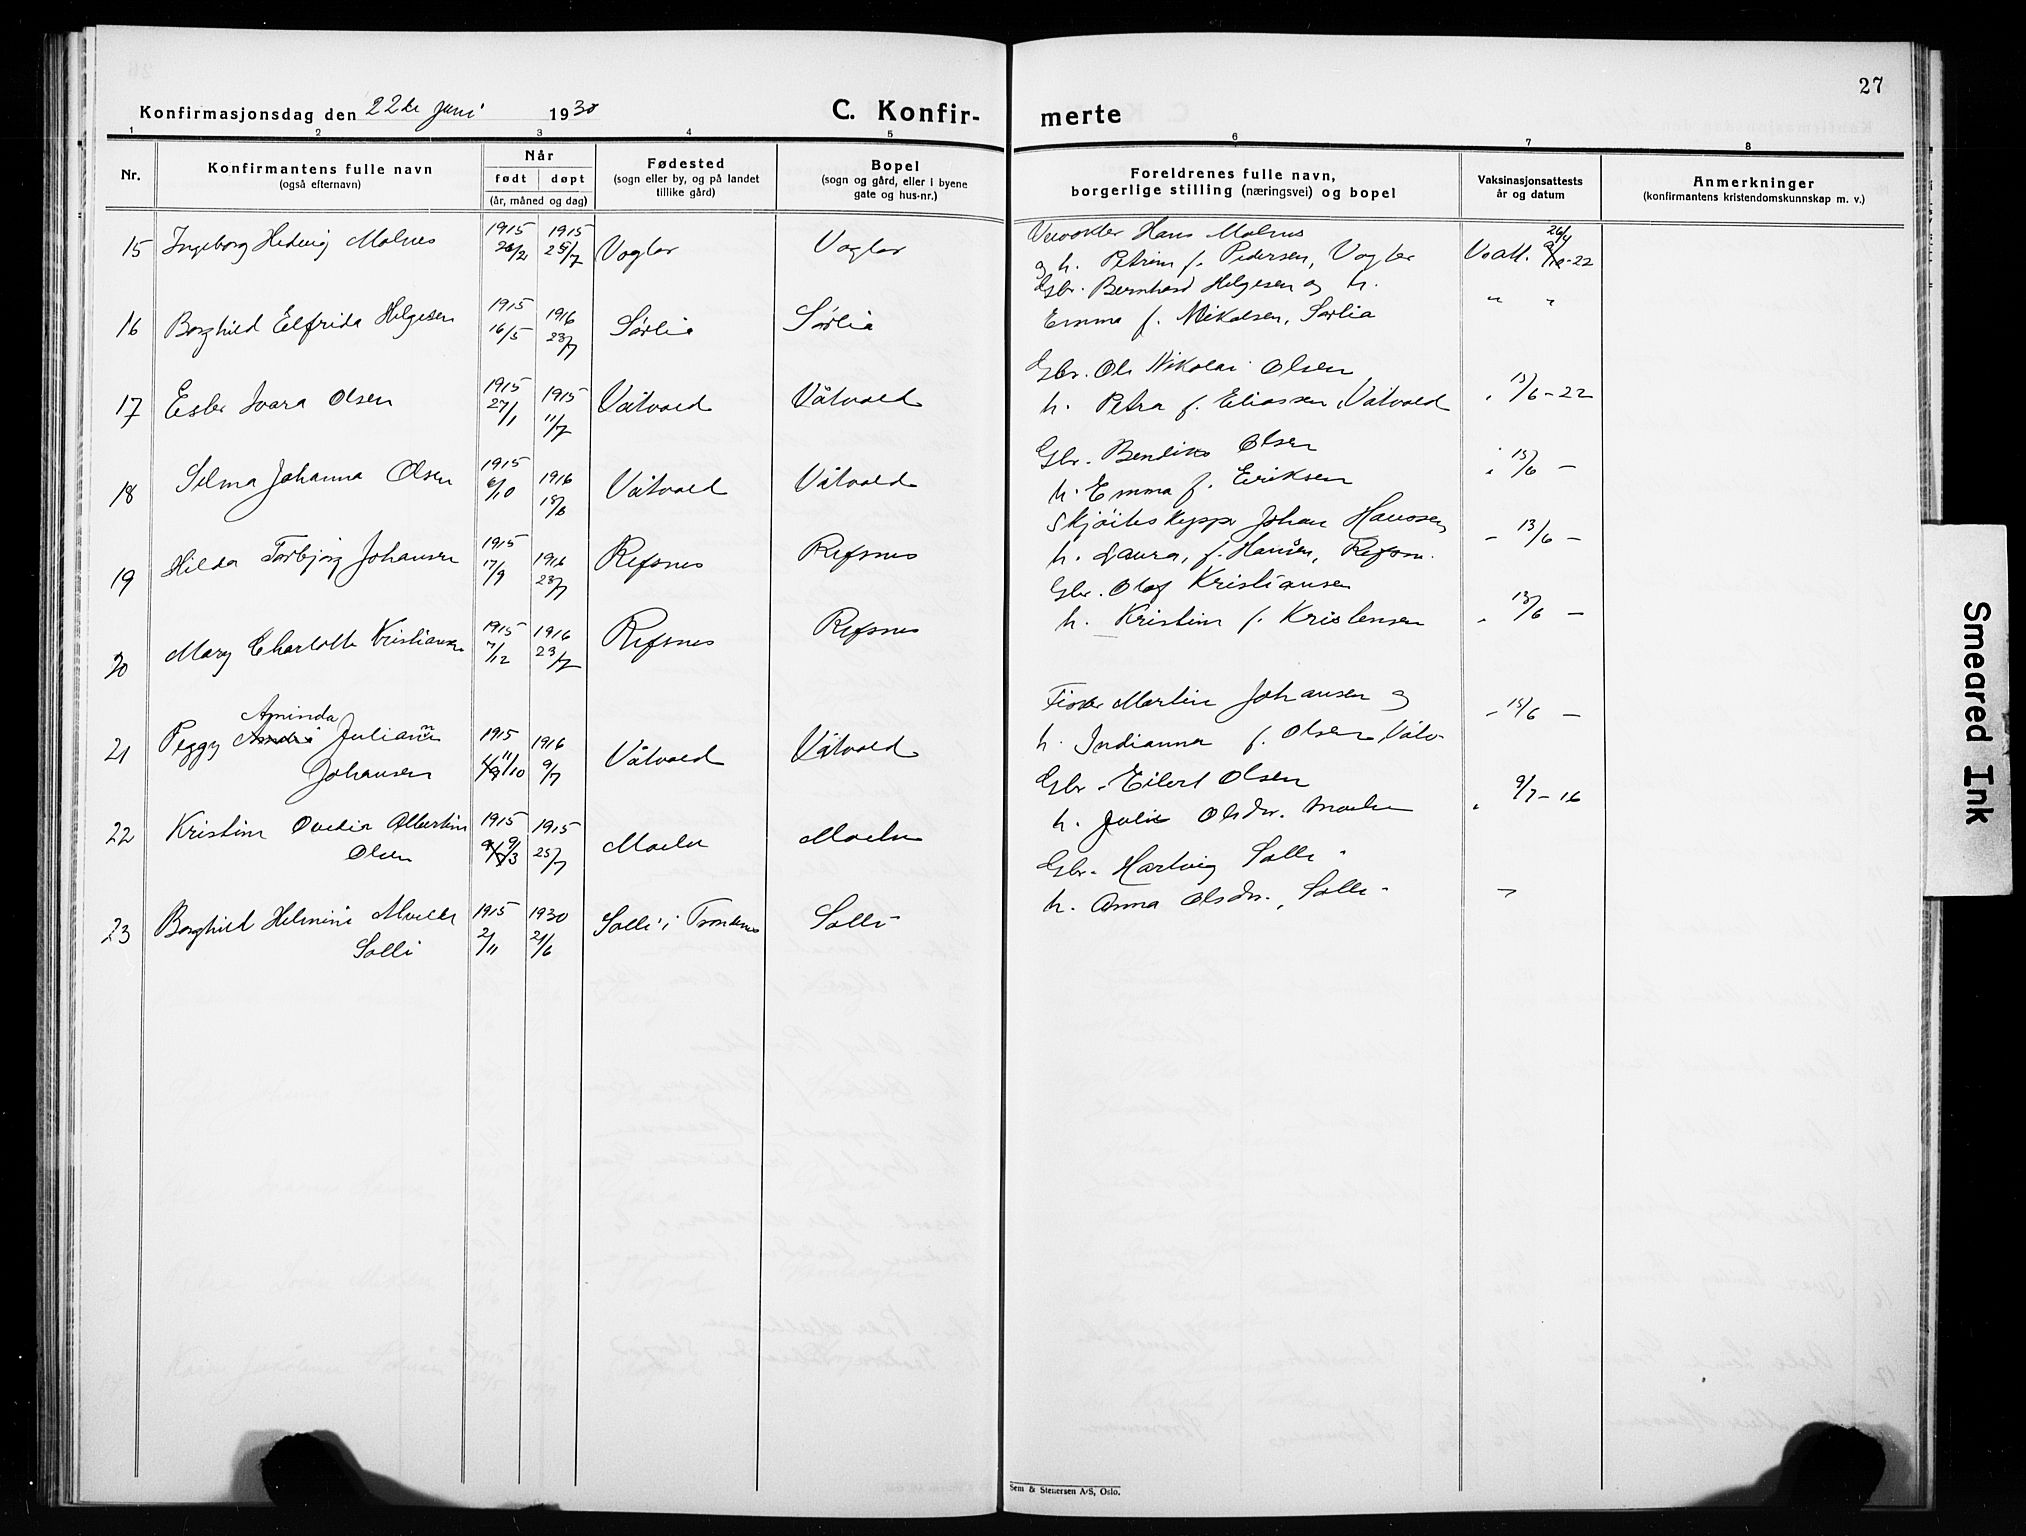 27
Konfirmasjonsdag den 22de juni 1930
C. Konfir-
merte
1 2 3 4 5 6 7 8
Nr.
Konfirmantens fulle navn
(også efternavn)
Når
født døpt
(år, måned og dag)
Fødested
(sogn eller by, og på landet
tillike gård)
Bopel
(sogn og gård, eller i byene
gate og hus-nr.)
Foreldrenes fulle navn,
borgerlige stilling (næringsvei) og bopel
Vaksinasjonsattests
år og datum
Anmerkninger
(konfirmantens kristendomskunnskap m. v.)
15 Ingeborg Hedvig Molnes 1915 1915 25/7 Voglar Voglar
Hans Molnes
og h. Petrine f. Pedersen, Vogler V. att. -22
16 Borghild Elfrida Helgesen 1915 16/5 1916 23/7 Sørlia Sørlia
Gbr. Bernhard Helgesen og h.
Emma f. Nikolsen, Sørlia " "
17 Ester Ivara Olsen 1915 27/1 1915 11/7 Våtvold Våtvold
Gbr. Ole Nikolai Olsen
h. Petra f. Eliassen, Våtvold " 13/6-22
18 Selma Johanna Olsen 1915 6/10 1916 18/6 Våtvold Våtvold
Gbr. Bendiks Olsen
h. Emma f. Eriksen " 13/6 -
19 Hilda Torbjørg Johansen 1915 17/9 1916 23/7 Refsnes Refsnes
Johan Hanssen
h. Laura, f. Hansen, Refsn. - 13/6 -
20 Mary Charlotte Kristiansen 1915 7/12 1916 23/7 Refsnes Refsnes
Gbr. Olaf Kristiansen
h. Kristine f. Kristensen " 13/6 -
Aminda
21 Peggy Juliane 1915 11/10 1916 9/7 Våtvold Våtvold
Johansen
Fisker Martin Johansen og
h. Indianna f. Olsen, Våtv. - 13/6 -
22 Kristine Ovedia Albertine 1915 1915 25/7 Moelv Moelv
Olsen
Gbr. Eilert Olsen
h. Julie Olsdtr. Moelv " 9/7-16
23 Borghild Helmine 1915 2/11 1930 21/6 Solli i Trondenes Solli
Solli
Gbr. Hartvig Solli
h. Anna Olsdtr., Solli
Sem & Stenersen A/S, Oslo.
Smeared Ink